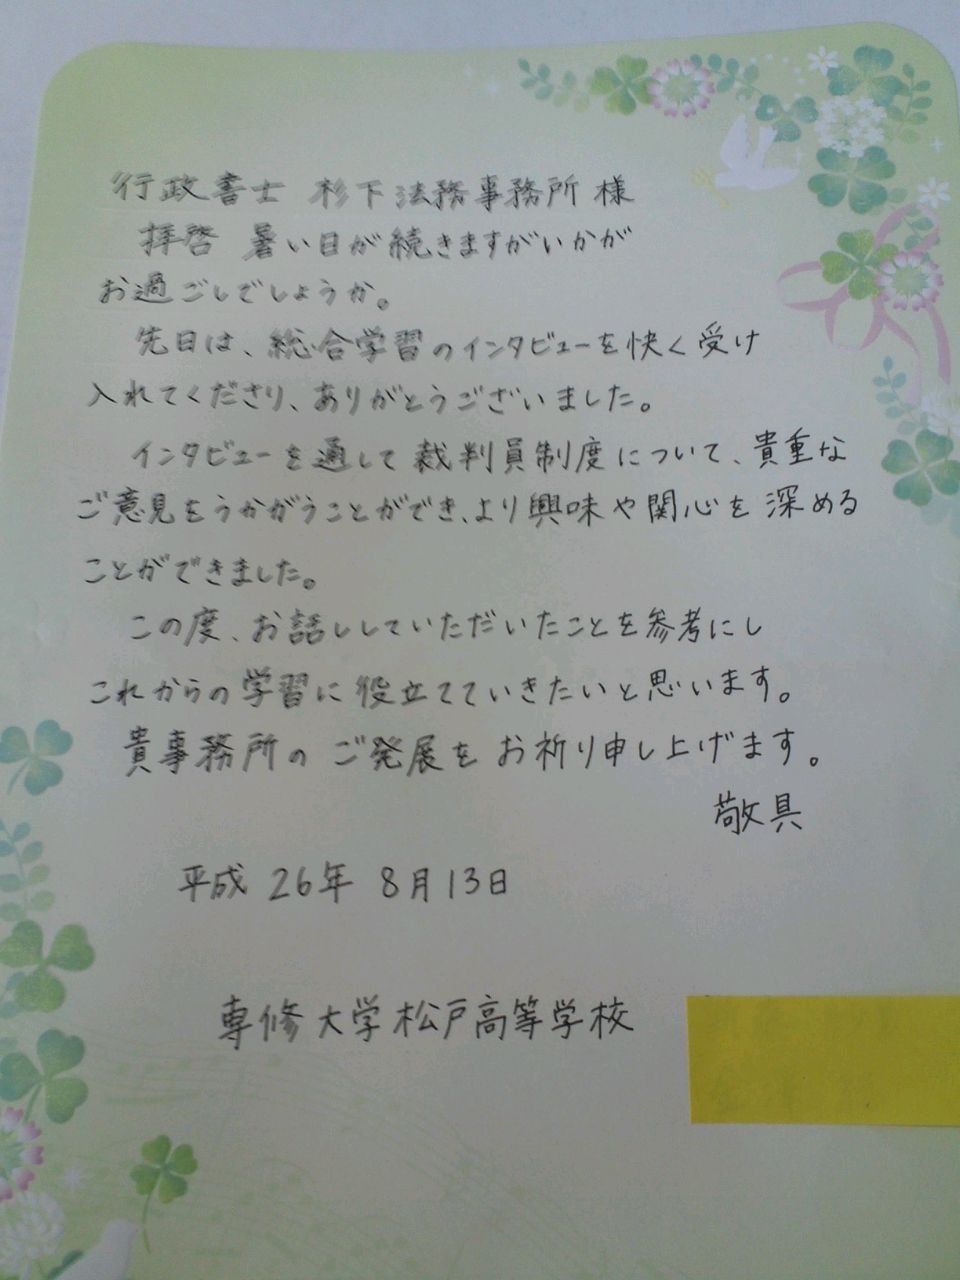 行政書士 杉下法務事務所 様
拝啓 暑い日が続きますがいかが
お過ごしでしょうか。
先日は、総合学習のインタビューを快く受け
入れてくださり、ありがとうございました。
インタビューを通して裁判員制度について、貴重な
ご意見をうかがうことができ、より興味や関心を深める
ことができました。
この度、お話ししていただいたことを参考にし
これからの学習に役立てていきたいと思います。
貴事務所のご発展をお祈り申し上げます。
敬具
平成 26年 8月13日
専修大学松戸高等学校